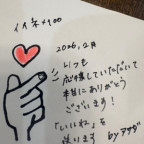 イイネ×100
2026.2月
いつも
応援していただいて
本当にありがとう
ございます！
「いいね」を
送ります
byアサダ